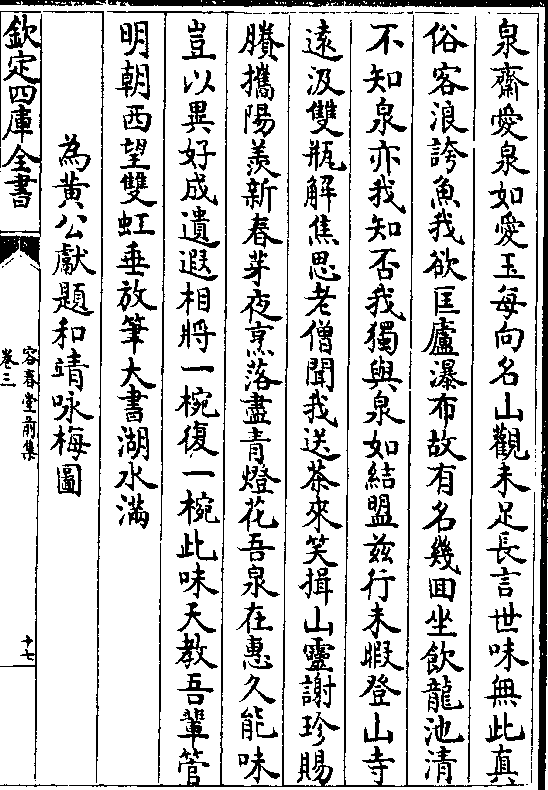 泉齋愛泉如愛玉每向名山觀未足長言世味無此真
俗客浪誇魚我欲匡廬瀑布故有名幾回坐飲龍池清
不知泉亦我知否我獨與泉如結盟兹行未暇登山寺
遠汲雙瓶解焦思老僧聞我送茶來笑揖山靈謝珍賜
賸攜陽羨新春芽夜烹落盡青燈花吾泉在惠久能味
豈以異好成遺遐相將一椀復一椀此味天教吾輩管
明朝西望雙虹垂放筆大書湖水滿
為黄公獻題和靖咏梅圖
欽定四庫全書
容春堂前集
卷三
十七